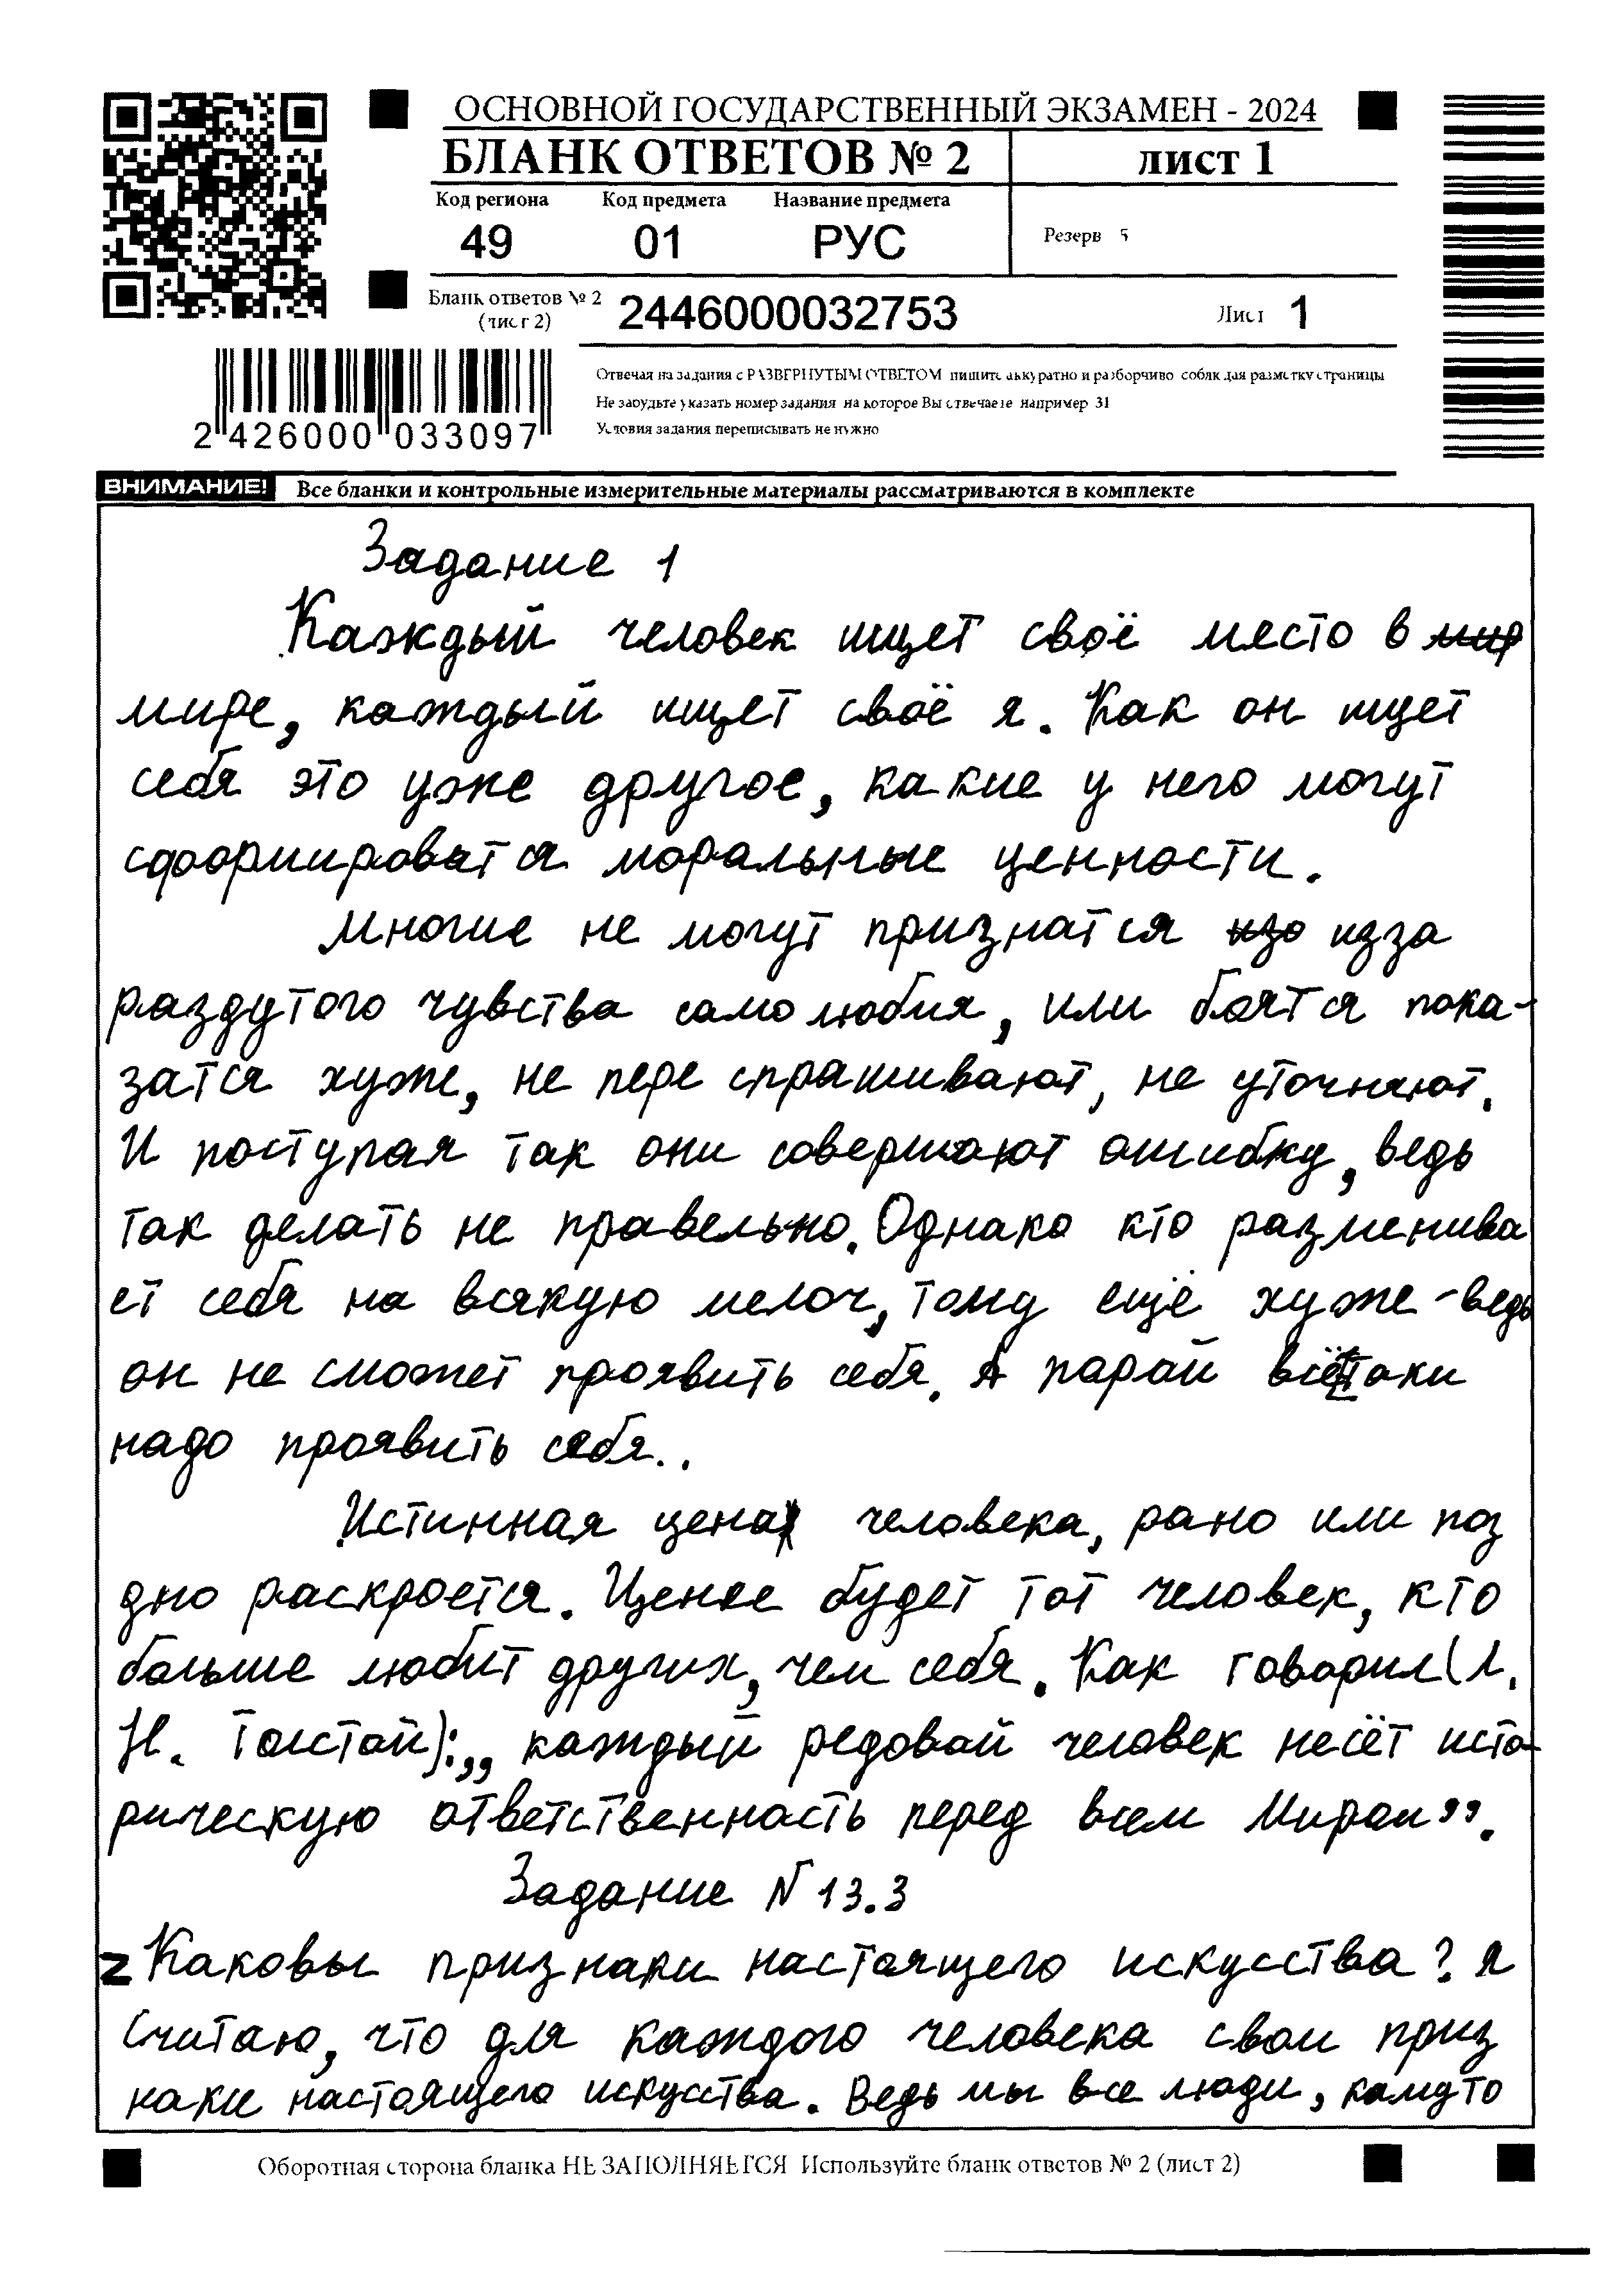 ОСНОВНОЙ ГОСУДАРСТВЕННЫЙ ЭКЗАМЕН - 2024
БЛАНК ОТВЕТОВ № 2
лист 1
Код региона Код предмета Название предмета
49 01 РУС
Резерв 5
Бланк ответов № 2
(лист 2)
2446000032753
Лист 1
2 426000 033097
Отвечая на задания с РАЗВЕРНУТЫМ ОТВЕТОМ пишите аккуратно и разборчиво соблюдая разметку страницы
Не забудьте указать номер задания на которое Вы отвечаете например 31
Условия задания переписывать не нужно
ВНИМАНИЕ! Все бланки и контрольные измерительные материалы рассматриваются в комплекте
Задание 1
Каждый человек ищет своё место в мир
мире, каждый ищет своё я. Как он ищет
себя это уже другое, какие у него могут
сформироватся моральные ценности.
Многие не могут признатся изо изза
раздутого чувства самолюбия, или боятся пока-
затся хуже, не пере спрашивают, не уточняют.
И поступая так они совершают ошибку, ведь
так делать не правельно. Однако кто разменива
ет себя на всякую мелоч, тому ещё хуже - ведь
он не сможет проявить себя. А парой всётаки
надо проявить себя..
Истинная цена человека, рано или поз
дно раскроется. Ценее будет тот человек, кто
больше любит других, чем себя. Как говорил (Л.
Н. Толстой):,, каждый редовой человек несёт исто-
рическую ответственность перед всем Миром”.
Задание N 13.3
Z Каковы признаки настоящего искусства? Я
считаю, что для каждого человека свои приз
наки настоящего искусства. Ведь мы все люди, камуто
Оборотная сторона бланка НЕ ЗАПОЛНЯЕТСЯ Используйте бланк ответов № 2 (лист 2)